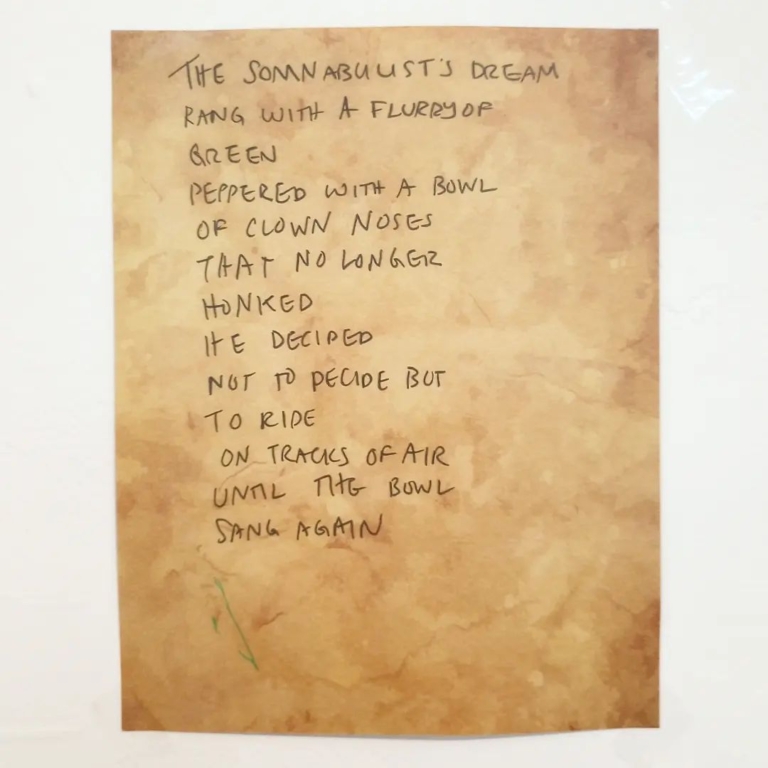 THE SOMNABULIST'S DREAM
RANG WITH A FLURRY OF
GREEN
PEPPERED WITH A BOWL
OF CLOWN NOSES
THAT NO LONGER
HONKED
HE DECIDED
NOT TO DECIDE BUT
TO RIDE
ON TRACKS OF AIR
UNTIL THE BOWL
SANG AGAIN